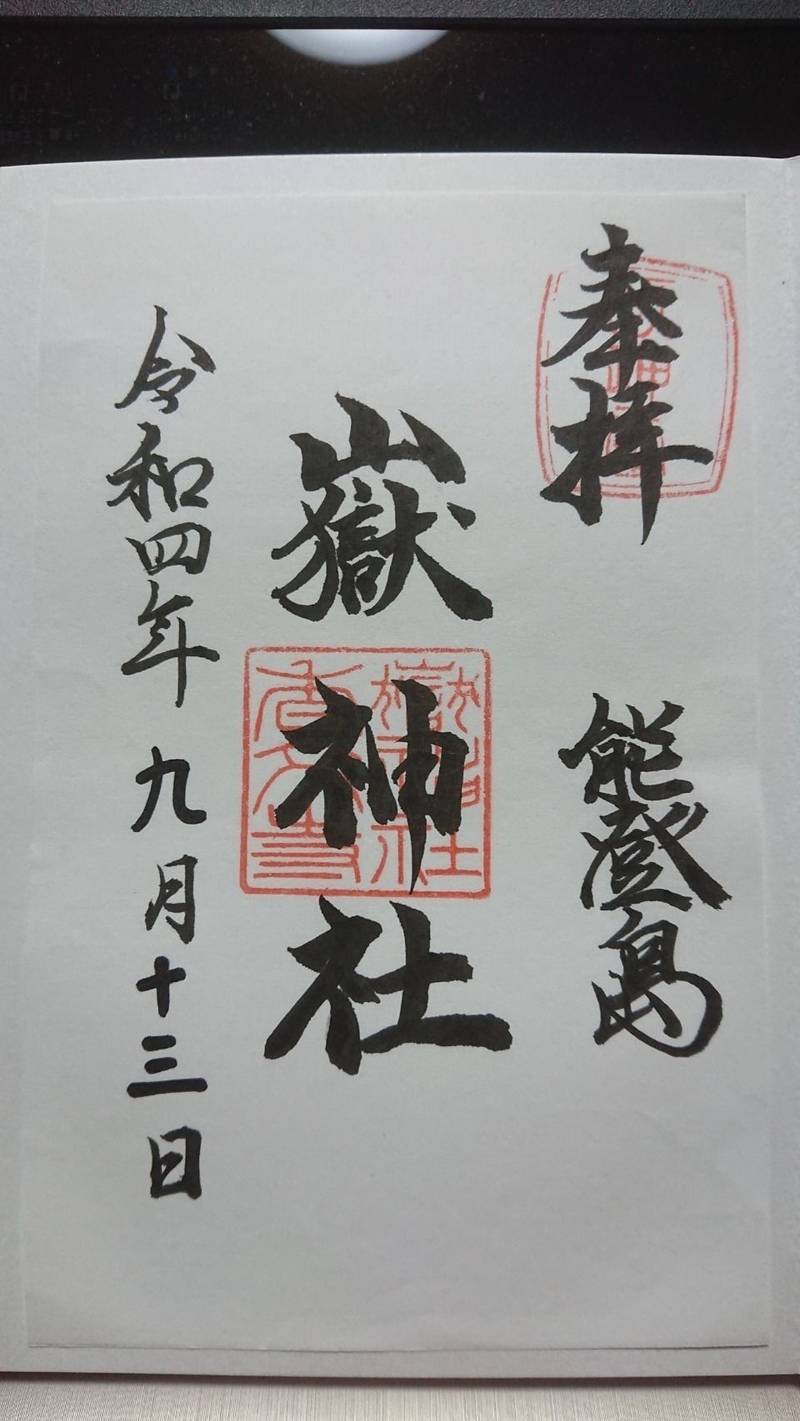 奉拝
能登島
嶽神社
令和四年九月十三日